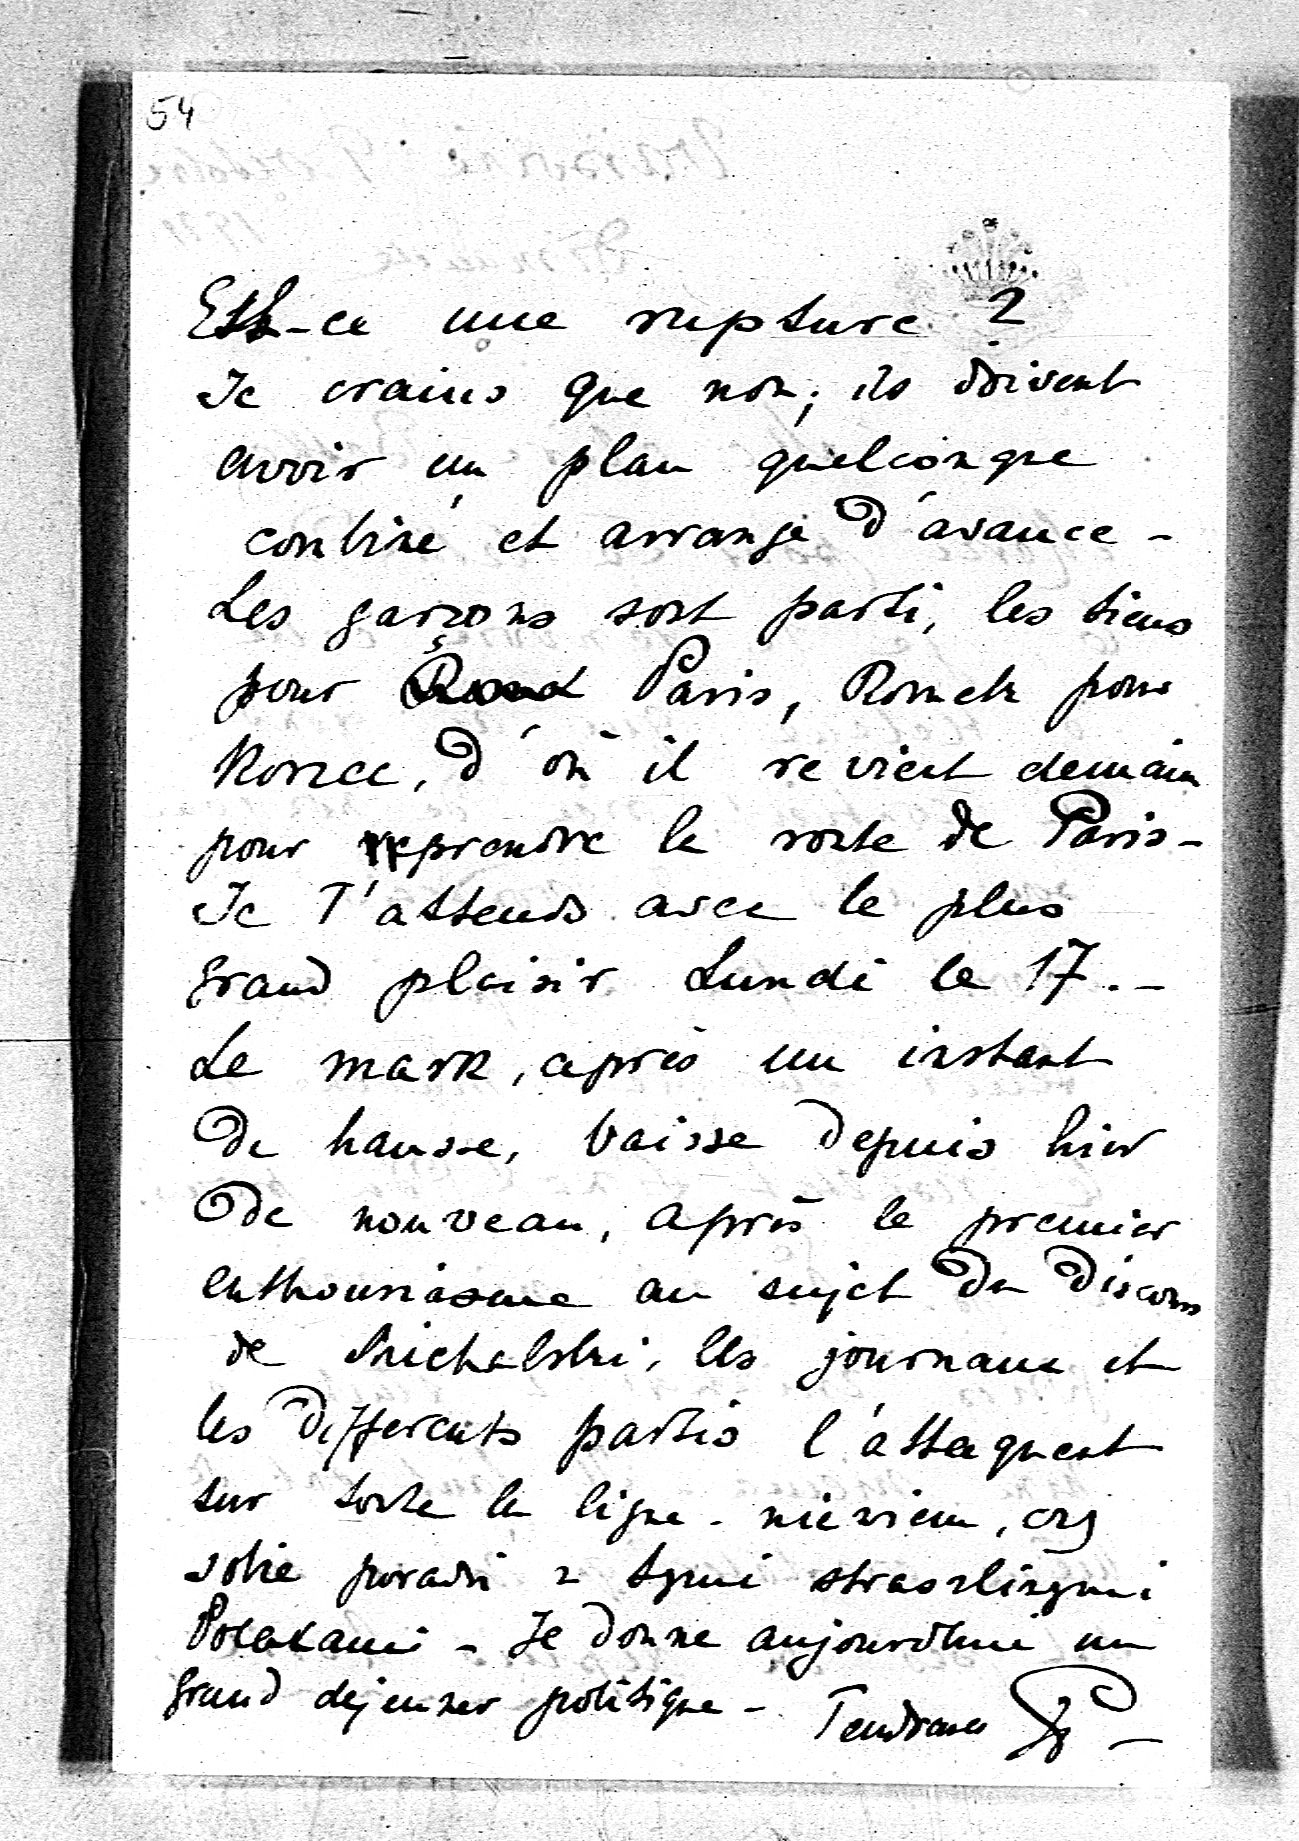 54
Est-ce une rupture ?
Je crains que non, ils doivent
avoir un plan quelconque
combiné et arrangé d'avance -
Les garçons sont parti, les tiens
pour Paris, Romek pour
d'où il revient demain
pour reprendre la route de Paris -
Je T'attends avec le plus
grand plaisir Lundi le 17. -
Le mark, après un instant
de hausse, baisse depuis hier
de nouveau, après le premier
enthousiasme au sujet du discours
de Michalski, les journaux et
les differents partis l'attaquent
sur toute la ligne - nie wiem, czy
sobie poradzi z tymi strasznymi
Polakami - Je donne aujourdhui un
grand dejeuner politique - Tendresses